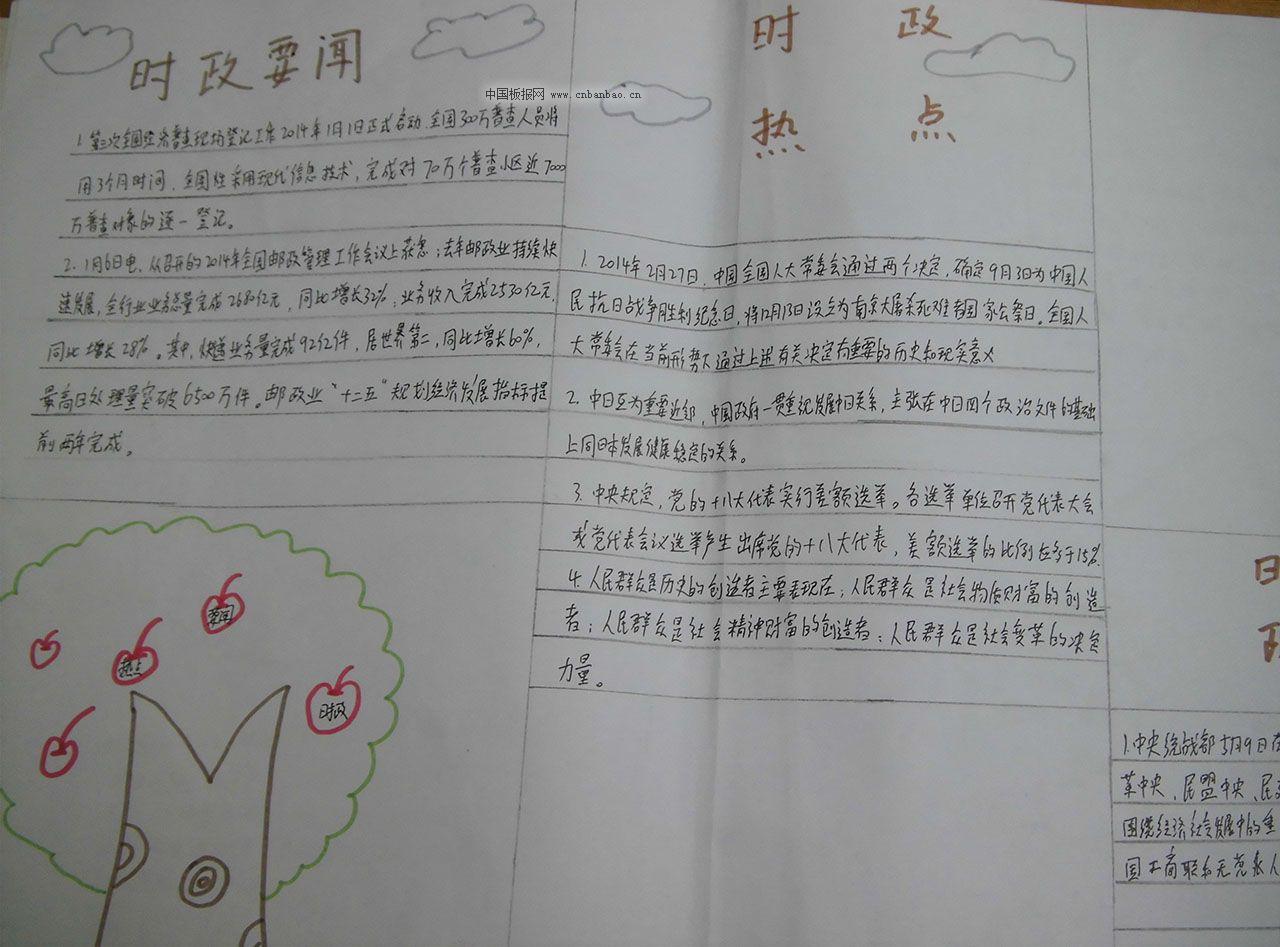 时政要闻
中国板报网 www.cnbanbao.cn
1.第三次全国经济普查现场登记工作2014年1月1日正式启动.全国300万普查人员将
用3个月时间、全国性采用现代信息技术，完成对70万个普查小区近7000
万普查对象的逐一登记。
2.1月6日电，从召开的2014年全国邮政管理工作会议上获悉；去年邮政业持续快
速发展，全行业业务总量完成2680亿元，同比增长32%；业务收入完成2530亿元，
同比增长28%。其中，快递业务量完成92亿件，居世界第二，同比增长60%，
最高日处理量突破6500万件。邮政业“十二五”规划经济发展指标提
前两年完成。
要闻
热点
时政
时政
热点
1.2014年2月27日，中国全国人大常委会通过两个决定，确定9月3日为中国人
民抗日战争胜利纪念日，将12月13日设立为南京大屠杀死难者国家公祭日。全国人
大常委会在当前形势下通过上述有关决定有重要的历史和现实意义
2.中日互为重要近邻，中国政府一贯重视发展中日关系，主张在中日四个政治文件的基础
上同日本发展健康稳定的关系。
3.中央规定，党的十八大代表实行差额选举。各选举单位召开党代表大会
或党代表会议选举产生出席党的十八大代表，差额选举的比例应多于15%.
4.人民群众是历史的创造者主要表现在；人民群众是社会物质财富的创造
者；人民群众是社会精神财富的创造者；人民群众是社会变革的决定
力量。
1.中央统战部5月9日在
革中央、民盟中央、民
围绕经济社会发展中的重
国工商联和无党派人